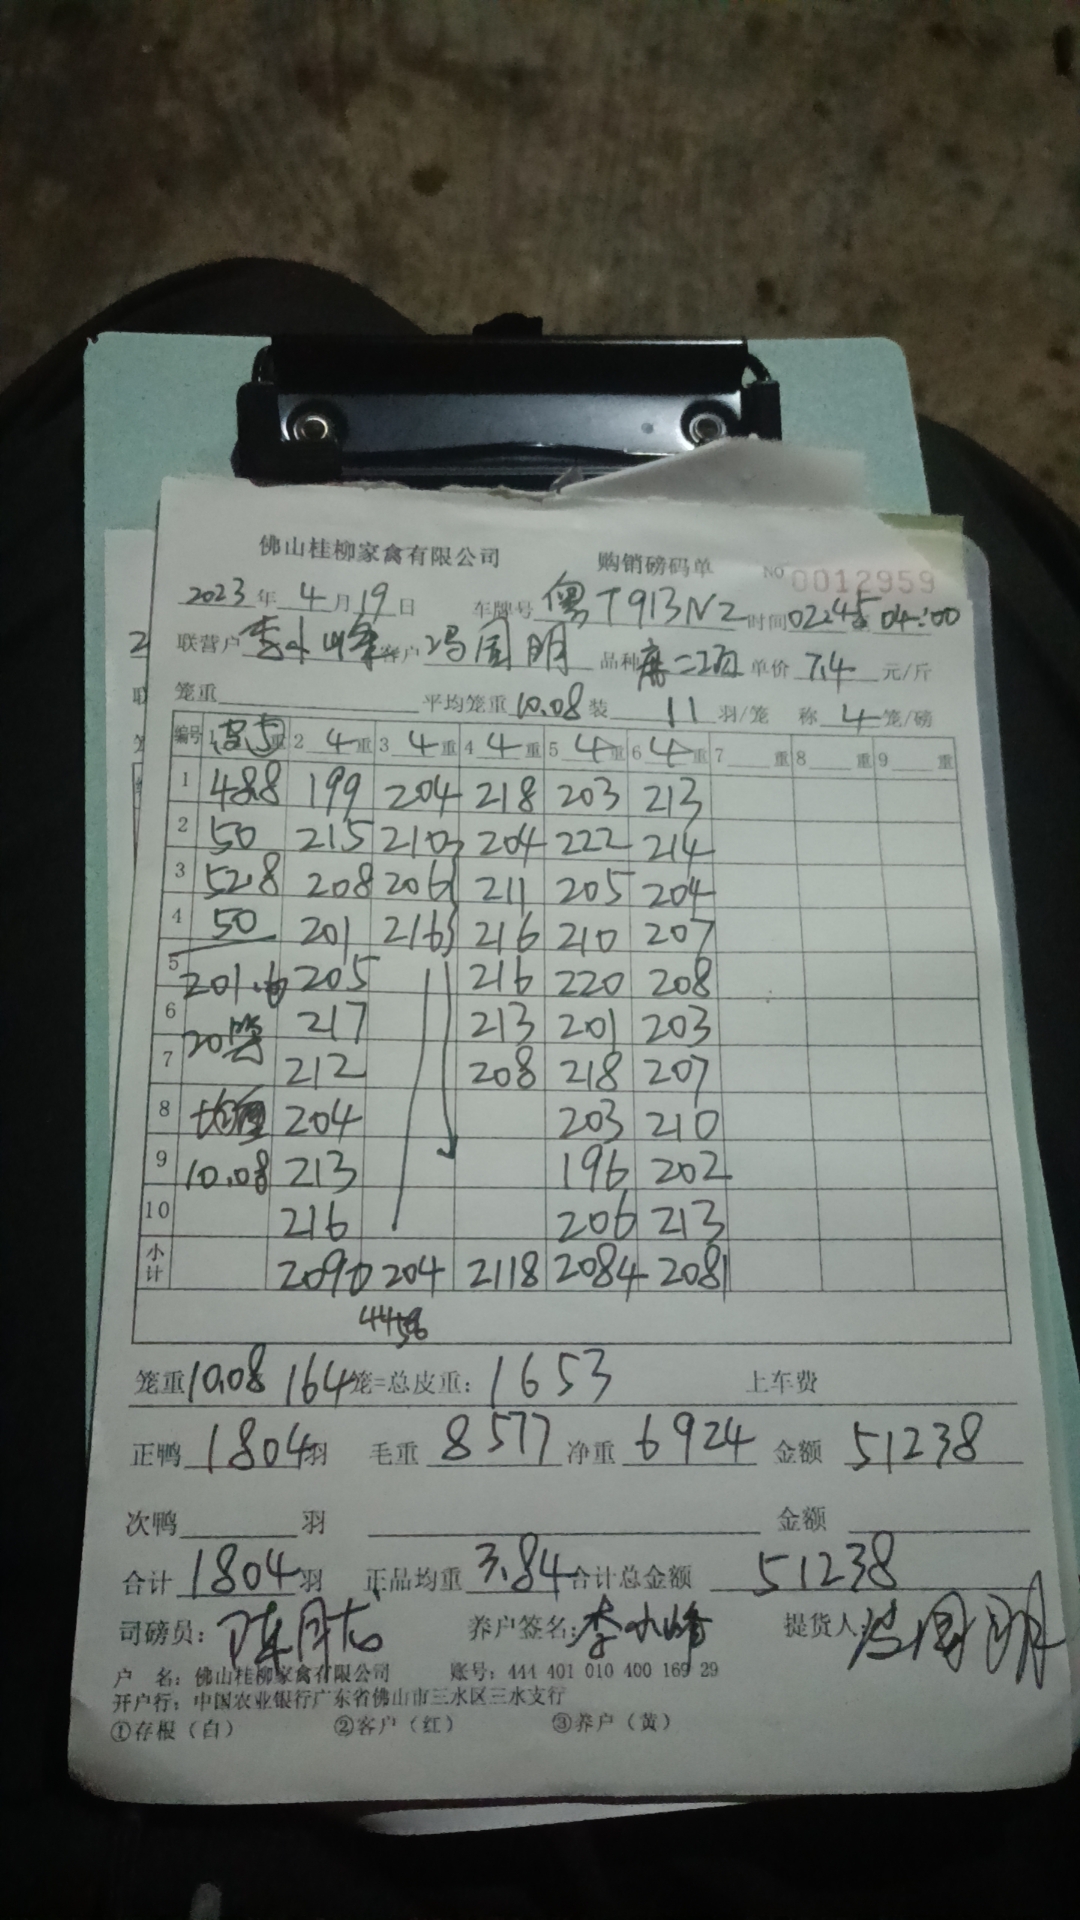 佛山桂柳家禽有限公司 购销磅码单 NO 0012959
2023年4月19日 车牌号 粤T913N2 时间 0245 04:00
联营户 李小峰 客户 冯国明 品种 单价 7.4 元/斤
笼重 平均笼重 10.08 装 11 羽/笼 称 4 笼/磅
编号 1 重 2 4 重 3 4 重 4 4 重 5 4 重 6 4 重 7 重 8 重 9 重
1 48.8 199 204 218 203 213
2 50 215 210 204 222 214
3 52.8 208 206 211 205 204
4 50 201 216 216 210 207
5 201.6 205 216 220 208
6 20笼 217 213 201 203
7 212 208 218 207
8 均重 204 203 210
9 10.08 213 196 202
10 216 206 213
小计 2090 204 2118 2084 2081
笼重 10.08 164 笼=总皮重: 1653 上车费
正鸭 1804 羽 毛重 8577 净重 6924 金额 51238
次鸭 羽 金额
合计 1804 羽 正品均重 3.84 合计总金额 51238
司磅员: 养户签名: 李小峰 提货人: 冯国明
户 名: 佛山桂柳家禽有限公司 账号: 444 401 010 400 169 29
开户行: 中国农业银行广东省佛山市三水区三水支行
①存根（白） ②客户（红） ③养户（黄）